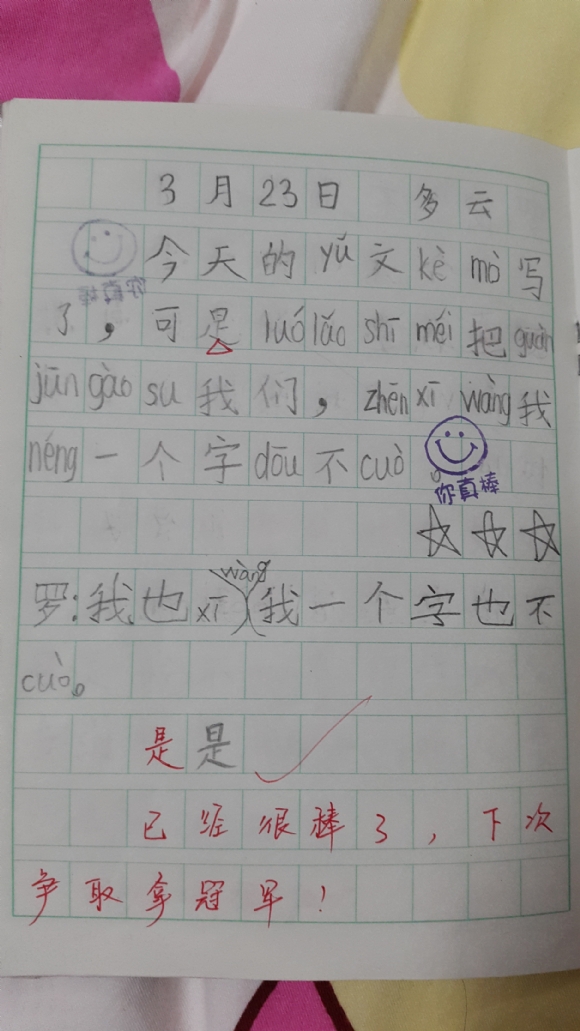 3月23日 多云
今天的yǔ文kè mò写
了，可是luó lǎo shī méi把guàn
jūn gào su我们，zhēn xī wàng我
néng一个字dōu不cuò。
你真棒
☆☆☆
罗:我也xī wàng我一个字也不
cuò。
是是
已经很棒了，下次
争取拿冠军！